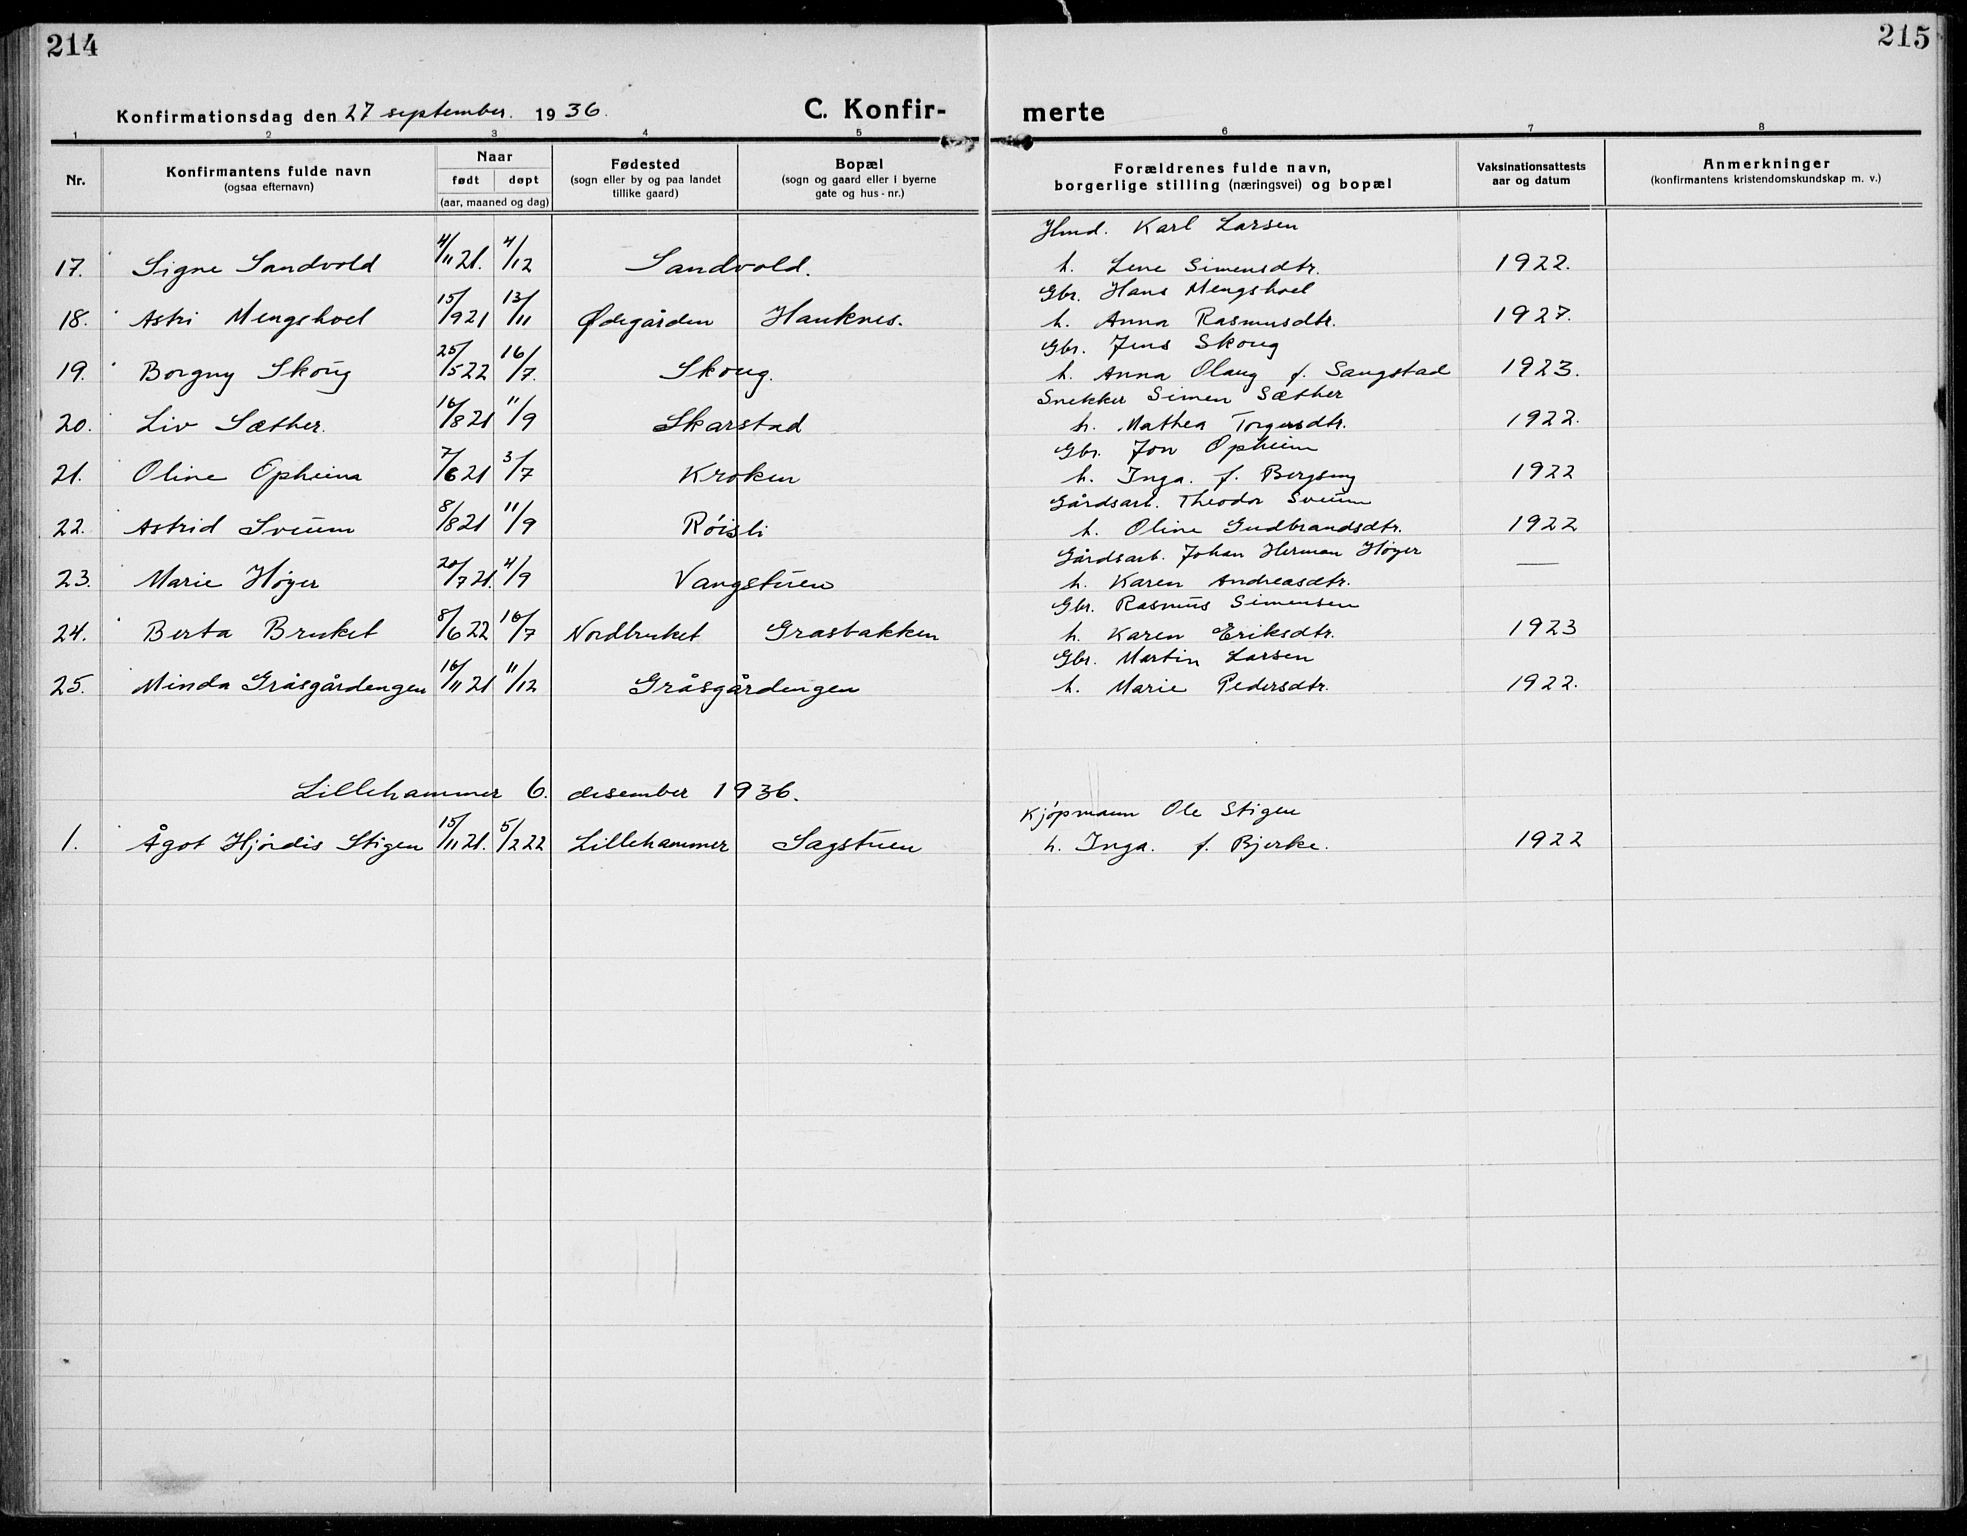 214
215
Konfirmationsdag den 27 september. 1936.
C. Konfir-
merte
1 2 3 4 5 6 7 8
Nr.
Konfirmantens fulde navn
(ogsaa efternavn)
Naar
født døpt
(aar, maaned og dag)
Fødested
(sogn eller by og paa landet
tillike gaard)
Bopæl
(sogn og gaard eller i byerne
gate og hus-nr.)
Forældrenes fulde navn,
borgerlige stilling (næringsvei) og bopæl
Vaksinationsattests
aar og datum
Anmerkninger
(konfirmantens kristendomskundskap m. v.)
Hmd. Karl Larsen
17. Signe Sandvold 4/11 21. 4/12 Sandvold. h. Lene Simensdtr. 1922.
Gbr. Hans Mengshoel
18. Astri Mengshoel 15/9 21 13/11 Ødegården Hauknes. h. Anna Rasmusdtr. 1927.
Gbr. Jens Skoug
19. Borgny Skoug 25/5 22 16/7. Skoug. h. Anna Olaug f. Sangstad 1923.
Snekker Simen Sæther
20. Liv Sæther. 16/8 21 11/9 Skarstad h. Mathea Torgersdtr. 1922.
Gbr. Jon Opheim
21. Oline Opheim 7/6 21 3/7 Kroken h. Inga. f. Bergseng 1922
Gårdsarb. Theodor Sveum
22. Astrid Sveum 8/8 21 11/9 Røisli h. Oline Gudbrandsdtr. 1922
Gårdsarb. Johan Herman Høyer
23. Marie Høyer 20/7 21. 4/9 Vangstuen h. Karen Andreasdtr. —
Gbr. Rasmus Simensen
24. Berta Bruket 8/6 22 16/7 Nordbruket Grasbakken h. Karen Eriksdtr. 1923
Gbr. Martin Larsen
25. Minda Gråsgårdengen 16/11 21 11/12 Gråsgårdengen h. Marie Pedersdtr. 1922.
Lillehammer 6. desember 1936.
Kjøpmann Ole Stigen
1. Ågot Hjørdis Stigen 15/11 21. 5/2 22 Lillehammer Sagstuen h. Inga. f. Bjerke. 1922